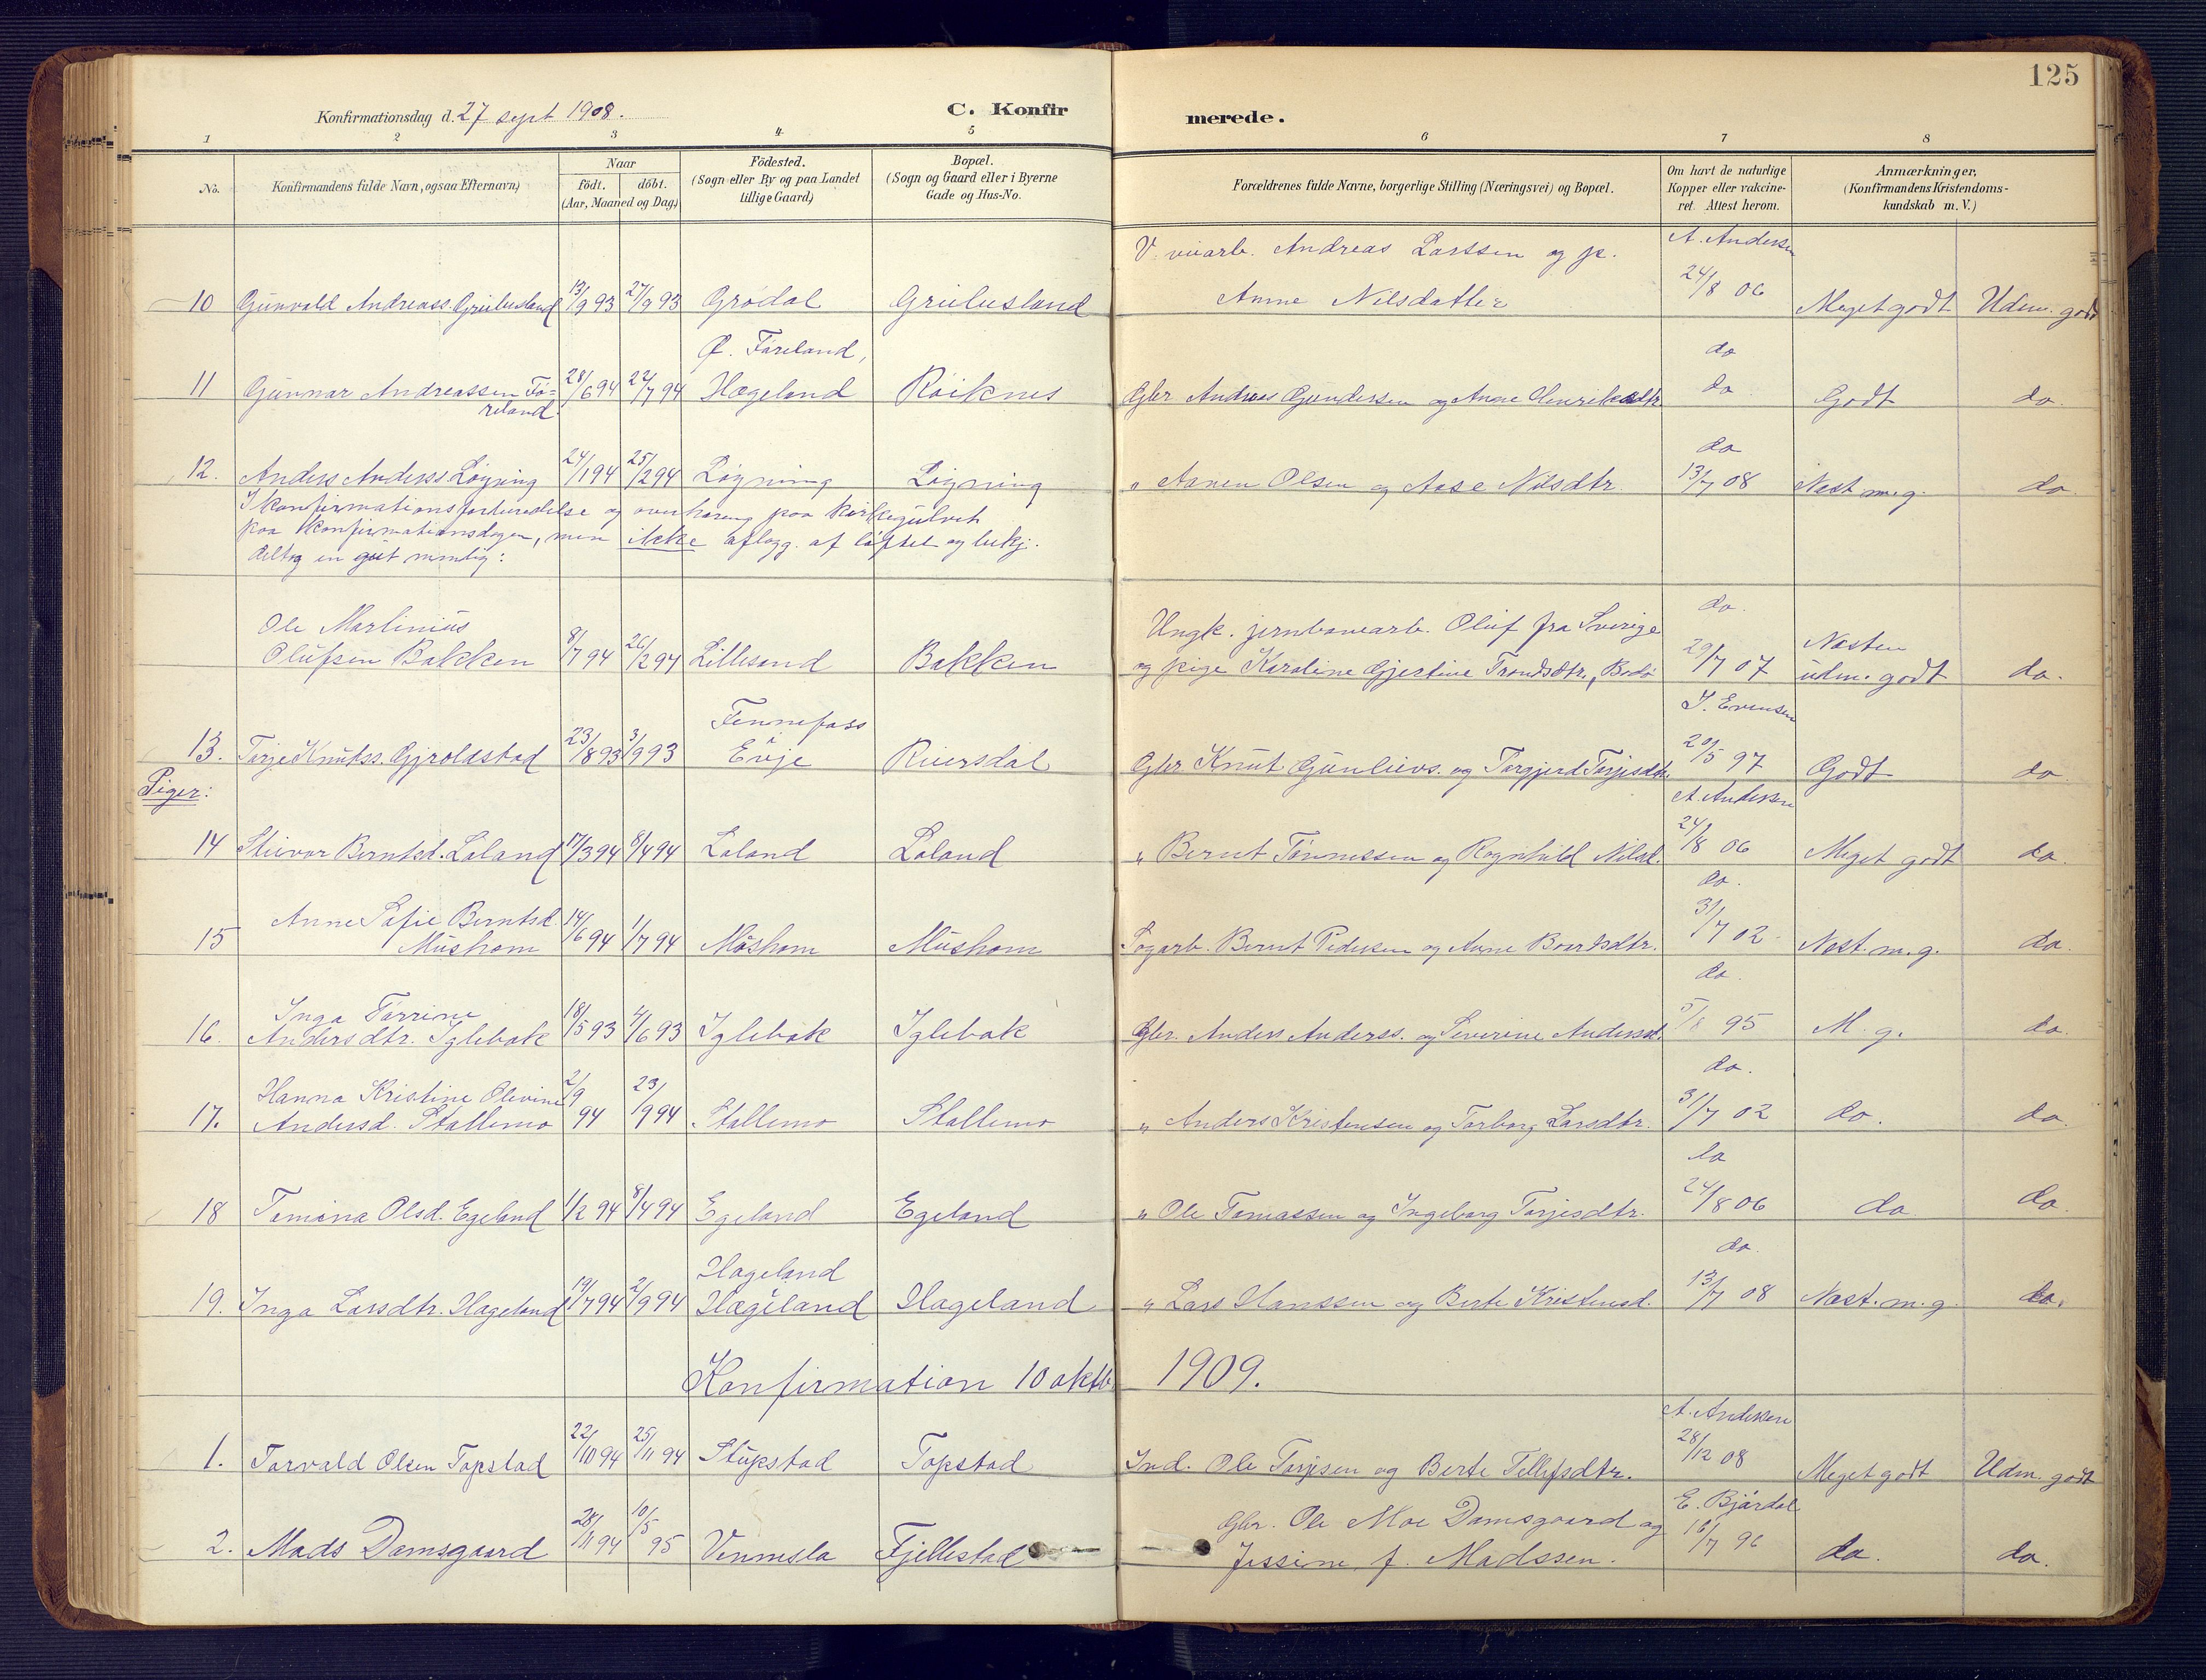 125
Konfirmationsdag d. 27 sept 1908.
C. Konfirmerede.
1 2 3 4 5 6 7 8
No.
Konfirmandens fulde Navn, ogsaa Efternavn)
Naar
födt. döbt.
(Aar, Maaned og Dag.)
Födested.
(Sogn eller By og paa Landet
tillige Gaard)
Bopæl.
(Sogn og Gaard eller i Byerne
Gade og Hus-No.
Forældrenes fulde Navne, borgerlige Stilling (Næringsvei) og Bopæl.
Om havt de naturlige
Kopper eller vakcine-
ret. Attest herom.
Anmærkninger,
(Konfirmandens Kristendoms-
kundskab m. V.)
V. veiarb. Andreas Larssen og p. A. Andersen
10 Gunvald Andreass. Greibesland 13/9 93 27/9 93 Grødal Greibesland Anne Nilsdatter 24/8 06 Meget godt Udm. godt
Ø. Føreland, do
11 Gunnar Andreassen Fø- 28/6 94 22/7 94 Hægeland Røiknes Gbr Andreas Gundersen og Anne Henriksdtr do Godt do.
reland
do
12. Anders Anderss Løgning 24/1 94 25/2 94 Løgning Løgning " Aanen Olsen og Aase Nilsdtr. 13/7 08 Næst m.g. do.
I konfirmationsforberedelse og overhøring paa kirkegulvet
paa konfirmationsdagen, men ikke aflægg. af løftet og bekj.
deltog en gut nemlig:
Ole Martinius Ungk. jernbanearb. Oluf fra Sverige do. Næsten
Olufsen Bakken 8/1 94 26/2 94 Lillesand Bakken og pige Karoline Gjertine Trondsdtr., Bodø 29/7 07 udm. godt do.
Fennefoss J. Evensen
13. Tarje Knutss. Gjroldstad 23/8 93 3/9 93 i Evje Reiersdal Gbr Knut Gunleivs. og Torgjerd Tarjesdtr. 20/5 97 Godt do
Piger: A. Andersen
14 Steivor Berntsd. Loland 17/3 94 8/4 94 Loland Loland " Bernt Tønnessen og Ragnhild Nilsd. 24/8 06 Meget godt do.
Anne Sofie Berntsd. do.
15 Mushom 14/6 94 1/7 94 Mushom Mushom Sagarb. Bernt Pedersen og Anne Baardsdtr. 31/7 02 Næst. m.g. do.
Inga Torrine do.
16. Andersdtr. Iglebæk 18/5 93 4/6 93 Iglebæk Iglebæk Gbr. Anders Anderss. og Severine Andersd. 5/8 95 M. g. do.
Hanna Kristine Olevine do.
17. Andersd. Stallemo 2/9 94 23/9 94 Stallemo Stallemo " Anders Kristensen og Torborg Larsdtr. 31/7 02 do. do.
do
18 Tomine Olsd. Egeland 1/2 94 8/4 94 Egeland Egeland " Ole Tomassen og Ingeborg Tarjesdtr. 24/8 06 do. do.
Hægeland do.
19. Inga Larsdtr. Hægeland 19/7 94 2/9 94 Hægeland Hægeland " Lars Hanssen og Berte Kristensd. 13/7 08 Næst. m. g. do.
Konfirmation 10 oktb. 1909.
A. Andersen
1. Torvald Olsen Topstad 22/10 94 25/11 94 Stupstad Topstad Ind. Ole Tarjesen og Berte Tellefsdtr. 28/12 08 Meget godt Udm. godt
Gbr. Ole Moe Damsgaard og E. Bjårdal
2. Mads Damsgaard 28/11 94 10/5 95 Vennesla Fjellestad Jessine f. Madssen. 16/7 96 do. do.